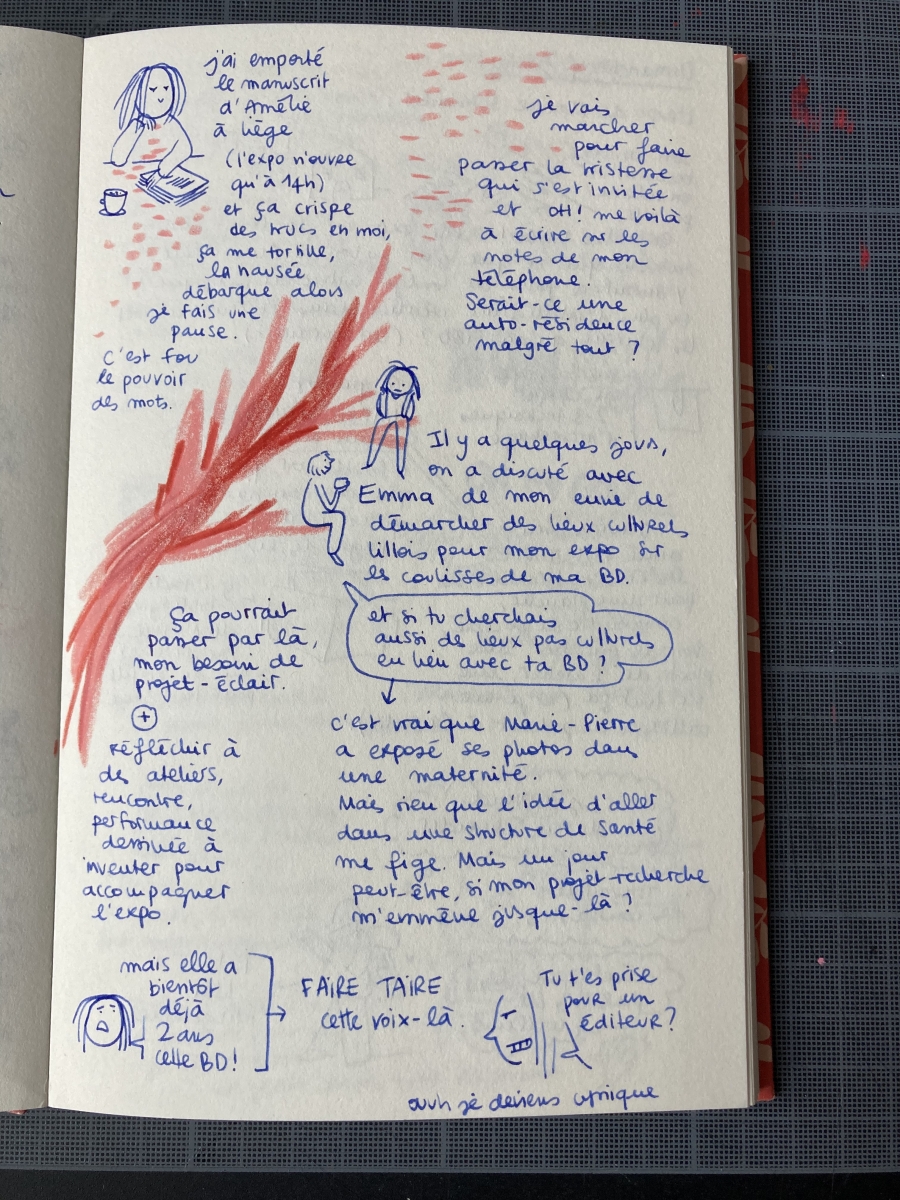 j'ai emporté
le manuscrit
d'Amélie
à Liège
(l'expo n'ouvre
qu'à 14h)
et ça crispe
des trucs en moi,
ça me tortille,
la nausée
débarque alors
je fais une
pause.
C'est fou
le pouvoir
des mots.
je vais
marcher
pour faire
passer la tristesse
qui s'est invitée
et OH! me voilà
à écrire sur les
notes de mon
téléphone
Serait-ce une
auto-résidence
malgré tout ?
Il y a quelques jours,
on a discuté avec
Emma de mon envie de
démarcher des lieux culturels
lillois pour mon expo sur
les coulisses de ma BD.
et si tu cherchais
aussi des lieux pas culturels
en lien avec ta BD ?
ça pourrait
passer par là,
mon besoin de
projet-éclair.
+
réfléchir à
des ateliers,
rencontre,
performance
dessinée à
inventer pour
accompagner
l'expo.
c'est vrai que Marie-Pierre
a exposé ses photos dans
une maternité.
Mais rien que l'idée d'aller
dans une structure de santé
me fige. Mais un jour
peut-être, si mon projet-recherche
m'emmène jusque-là ?
mais elle a
bientôt
déjà
2 ans
cette BD!
FAIRE TAIRE
cette voix-là.
Tu t'es prise
pour un
éditeur?
ouuh je deviens cynique